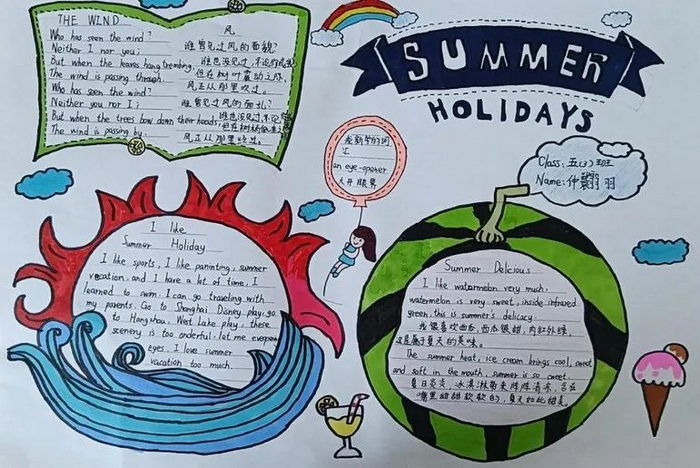 THE WIND
风
Who has seen the wind?
谁曾见过风的面貌?
Neither I nor you;
谁也没见过,不论你或我
But when the leaves hang trembling,
但在树叶震动之际,
The wind is passing through.
风正从那里吹过。
Who has seen the wind?
谁曾见过风的面孔?
Neither you nor I;
谁也没见过,不论
But when the trees bow down their heads,
但在树梢
The wind is passing by.
风正从那里经过。
SUMMER
HOLIDAYS
Class: 五(3)班
Name: 仲羽
我新学的词
汇
an eye-opener
大开眼界
I like
Summer Holiday
I like sports, I like paninting, summer
vacation, and I have a lot of time, I
learned to swim. I can go traveling with
my parents. Go to Shanghai Disney play, go
to Hangzhou, West Lake play, these
scenery is too onderful, let me eyeopen
eyes. I love summer
vacation too much.
Summer Delcious
I like watermelon very much,
watermelon is very sweet, inside infrared
green, this is summer's delicacy.
我很喜欢西瓜,西瓜很甜,内红外绿,
这是属于夏天的美味。
The summer heat, ice cream brings cool, sweet
and soft in the mouth, summer is so sweet.
夏日炎炎,冰淇淋带来阵阵清凉,含在
嘴里甜甜软软的,夏天如此甜美。